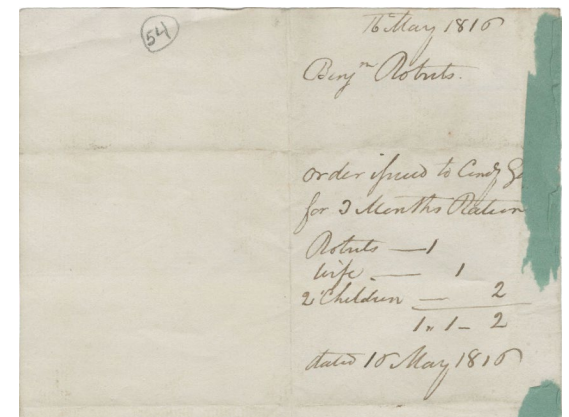 54
16 May 1816
Benjn Roberts.
order issued to Comdg Ge
for 3 Months Ration
Roberts — 1
wife — 1
2 Children — 2
1 " 1 - 2
dated 16 May 1816